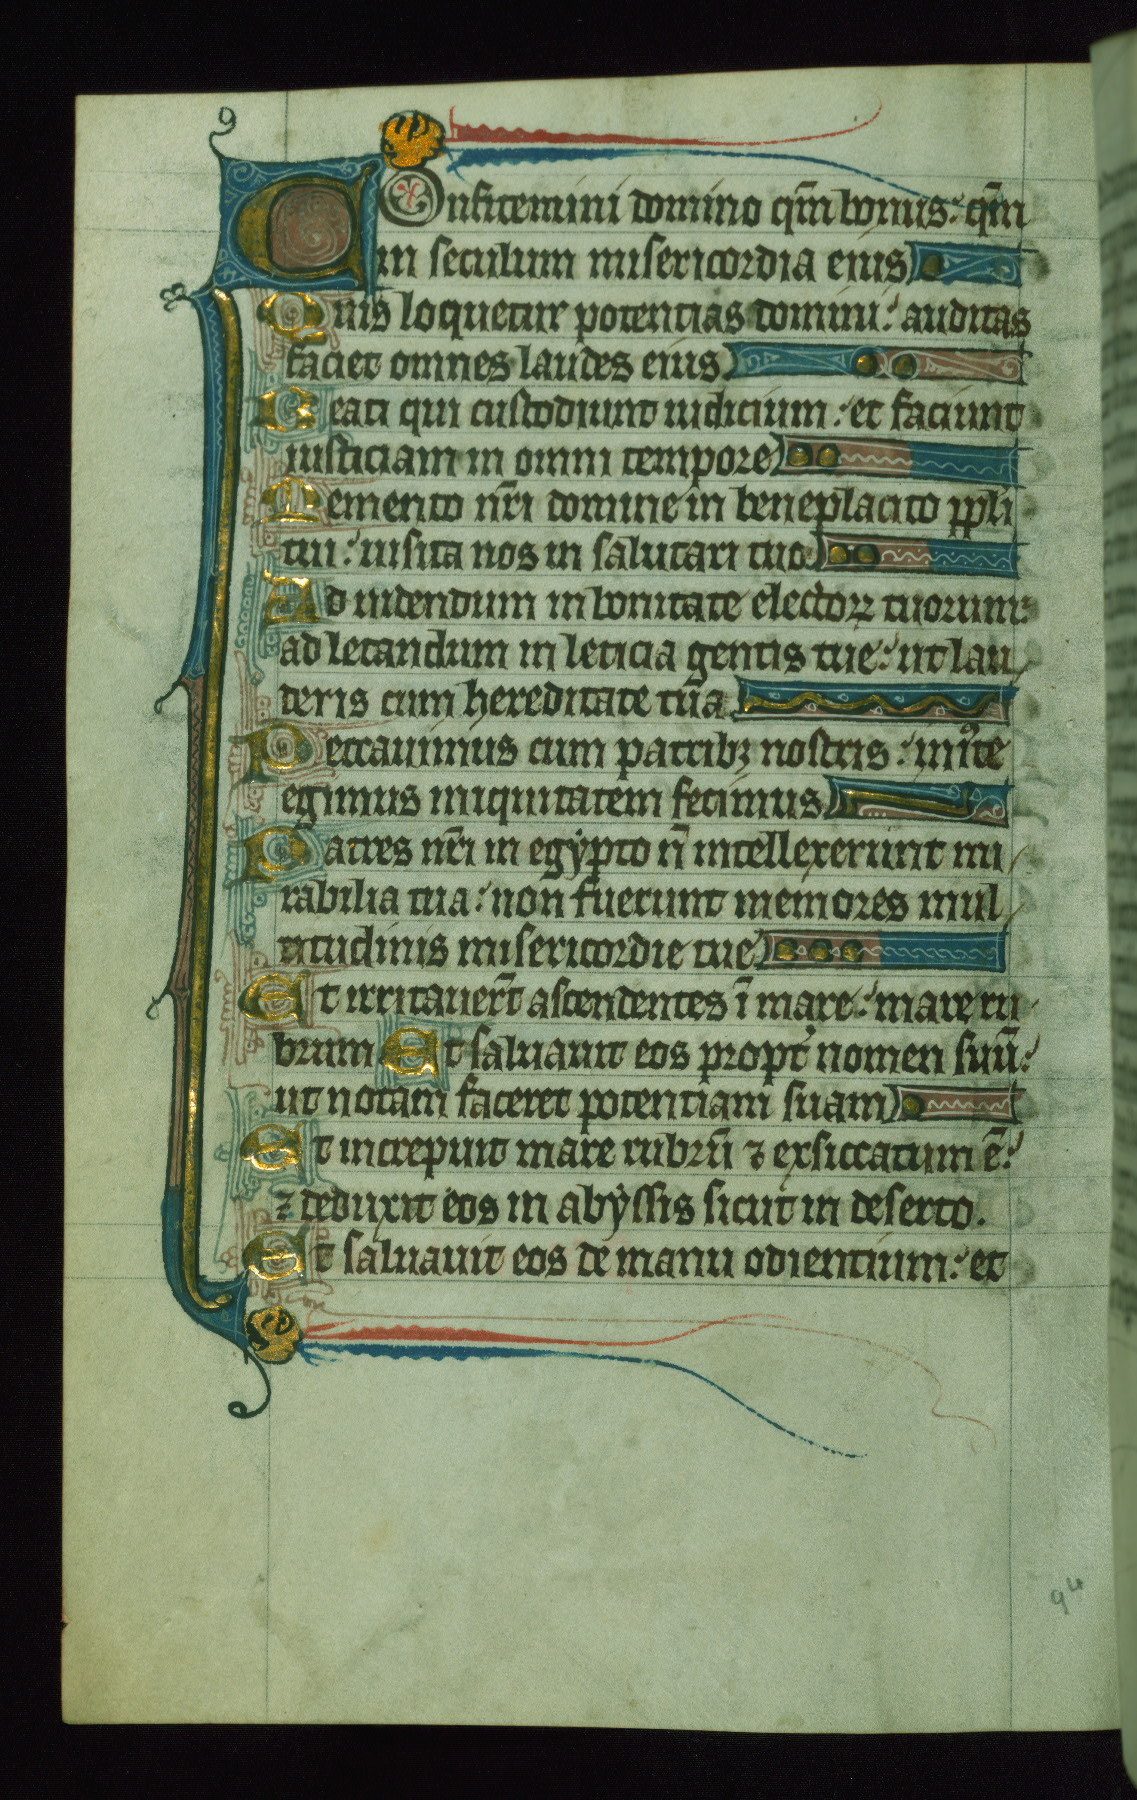 COnfitemini domino qm̄ bonus: qm̄
in seculum misericordia eius
Quis loquetur potentias domini: auditas
faciet omnes laudes eius
Beati qui custodiunt iudicium: et faciunt
iusticiam in omni tempore
Memento nr̄i domine in beneplacito ppli
tui: uisita nos in salutari tuo.
Ad uidendum in bonitate electoꝝ tuorum:
ad letandum in leticia gentis tue: ut lau/
deris cum hereditate tua
Peccauimus cum patribꝫ nostris: iniuste
egimus iniquitatem fecimus
Patres nr̄i in egypto n̄ intellexerunt mi/
rabilia tua: non fuerunt memores mul/
titudinis misericordie tue
Et irritauer̄t ascendentes ī mare: mare ru/
brum Et saluauit eos propt̓ nomen suū:
ut notam faceret potentiam suam
Et increpuit mare rubrū ⁊ exsiccatum ē:
⁊ deduxit eos in abyssis sicut in deserto.
Et saluauit eos de manu odientium: et
94